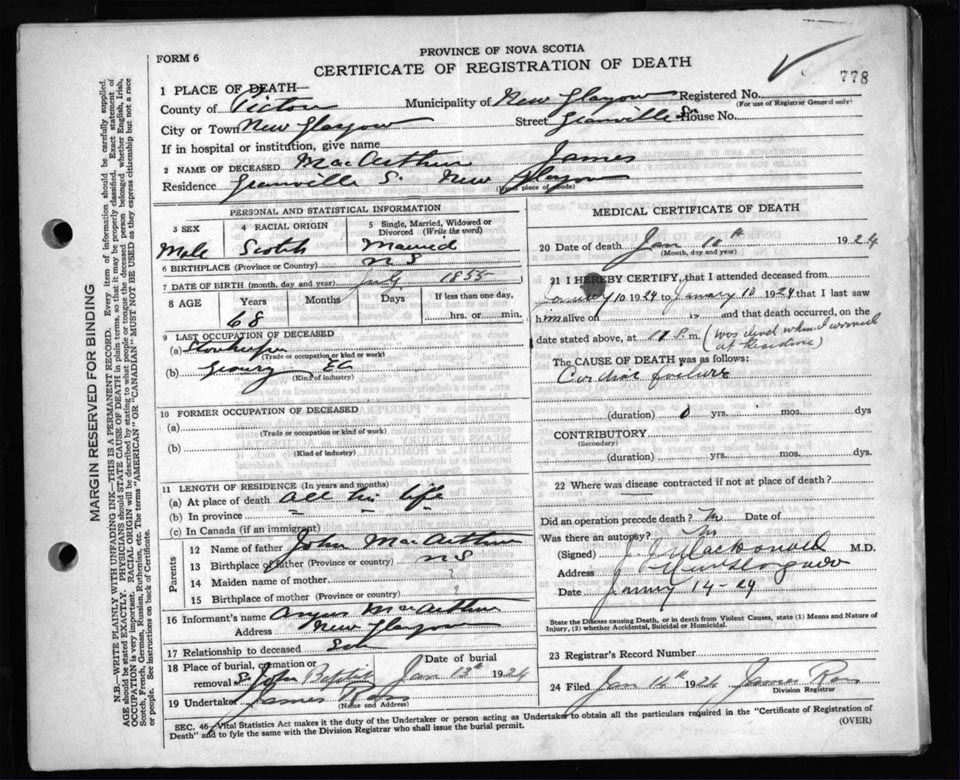 PROVINCE OF NOVA SCOTIA
FORM 6
CERTIFICATE OF REGISTRATION OF DEATH
778
1 PLACE OF DEATH—
County of Pictou Municipality of New Glasgow Registered No.
(For use of Registrar General only)
City or Town New Glasgow Street Granville St House No.
If in hospital or institution, give name
2 NAME OF DECEASED MacArthur James
Residence Granville S. New Glasgow
(Usual place of abode)
PERSONAL AND STATISTICAL INFORMATION
3 SEX 4 RACIAL ORIGIN 5 Single, Married, Widowed or Divorced (Write the word)
Male Scotch Married
6 BIRTHPLACE (Province or Country) N S
7 DATE OF BIRTH (month, day and year) July 1855
8 AGE Years Months Days If less than one day,
68 hrs. or min.
9 LAST OCCUPATION OF DECEASED
(a) Storkeeper
(Trade or occupation or kind or work)
(b)
(Kind of industry)
10 FORMER OCCUPATION OF DECEASED
(a)
(Trade or occupation or kind of work)
(b)
(Kind of industry)
11 LENGTH OF RESIDENCE (In years and months)
(a) At place of death all his life
(b) In province " " "
(c) In Canada (if an immigrant)
Parents
12 Name of father John MacArthur
13 Birthplace of father (Province or country) N S
14 Maiden name of mother ?
15 Birthplace of mother (Province or country) ?
16 Informant's name Angus MacArthur
Address New Glasgow
17 Relationship to deceased Son
18 Place of burial, cremation or removal St John Baptist Date of burial Jan 13th 1924
19 Undertaker James Ross
(Name and Address)
MEDICAL CERTIFICATE OF DEATH
20 Date of death Jan 10th 1924
(Month, day and year)
21 I HEREBY CERTIFY, that I attended deceased from
January 10 1924 to January 10 1924 that I last saw
him alive on 19 and that death occurred, on the
date stated above, at 11 P. m. (was dead when I arrived
at residence)
The CAUSE OF DEATH was as follows:
Cardiac failure
(duration) 0 yrs. mos. dys
CONTRIBUTORY
(Secondary)
(duration) yrs. mos. dys.
22 Where was disease contracted if not at place of death?
Did an operation precede death? No Date of
Was there an autopsy? No
(Signed) J. J. MacDonald M.D.
Address New Glasgow
Date January 14-24
State the Disease causing Death, or in death from Violent Causes, state (1) Means and Nature of
Injury, (2) whether Accidental, Suicidal or Homicidal.
23 Registrar's Record Number
24 Filed Jan 14th 1924 James Ross
Division Registrar
SEC. 46, Vital Statistics Act makes it the duty of the Undertaker or person acting as Undertaker to obtain all the particulars required in the "Certificate of Registration of
Death" and to fyle the same with the Division Registrar who shall issue the burial permit.
(OVER)
MARGIN RESERVED FOR BINDING
N.B.—WRITE PLAINLY WITH UNFADING INK—THIS IS A PERMANENT RECORD. Every item of information should be carefully supplied.
AGE should be stated EXACTLY. PHYSICIANS should STATE CAUSE OF DEATH in plain terms, so that it may be properly classified. Exact statement of
OCCUPATION is very important. RACIAL ORIGIN will be described by stating to what people or tongue the deceased person belonged whether English, Irish,
Scotch, French, German, Russian, Ruthenian, etc. The terms "AMERICAN" OR "CANADIAN" MUST NOT BE USED as they express citizenship but not a race
or people. See instructions on back of Certificate.